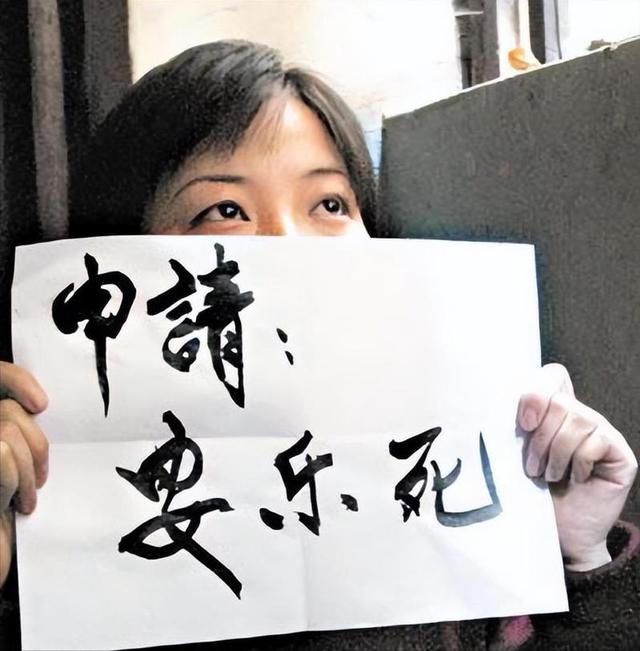 申請:
安乐死